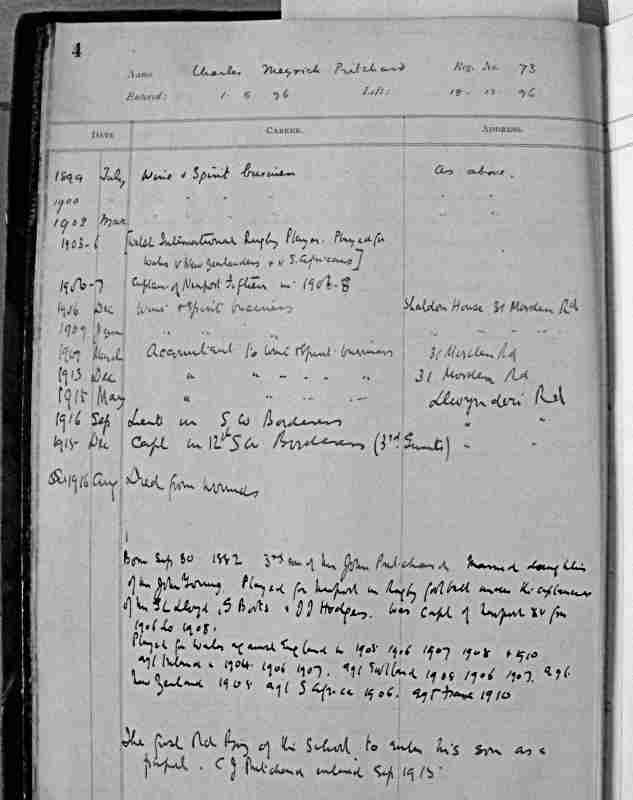 4
Name Charles Meyrick Pritchard Reg. No. 73
Entered: 1 5 96 Left: 18-12-96
DATE CAREER. ADDRESS.
1899 July Wine & Spirit business as above.
1900 " " " " " "
1902 Mar " " " " " "
1903-6 [Welsh International Rugby Player. Played for
Wales v New Zealanders & v S. Africans]
1906-7 Captain of Newport Fifteen in 1906-8
1906 Dec Wine & Spirit business Sheldon House 31 Morden Rd
1909 " " " " " " " "
1909 March Accountant to Wine & Spirit business 31 Morden Rd
1913 Dec " " " " " 31 Morden Rd
1915 May " " " " Llwynderi Rd
1916 Sep Lieut in S W Borderers " "
1915 Dec Capt in 12th S W Borderers (3rd Gwents) " "
1916 Aug Died from wounds
Born Sep 30 1882 3rd son of Mr John Pritchard Married daughter
of Mr John Young. Played for Newport in Rugby football under the captaincies
of Mr Lloyd, G Boots & J J Hodges. Was Capt of Newport XV from
1906 to 1908.
Played for Wales against England in 1905 1906 1907 1908 & 1910
agt Ireland in 1904. 1906 1907. agt Scotland 1905 1906 1907. agt
New Zealand 1905 agt S Africa 1906. agt France 1910
The first Old Boy of the School to enter his son as a
pupil. C J Pritchard entered Sep 1915